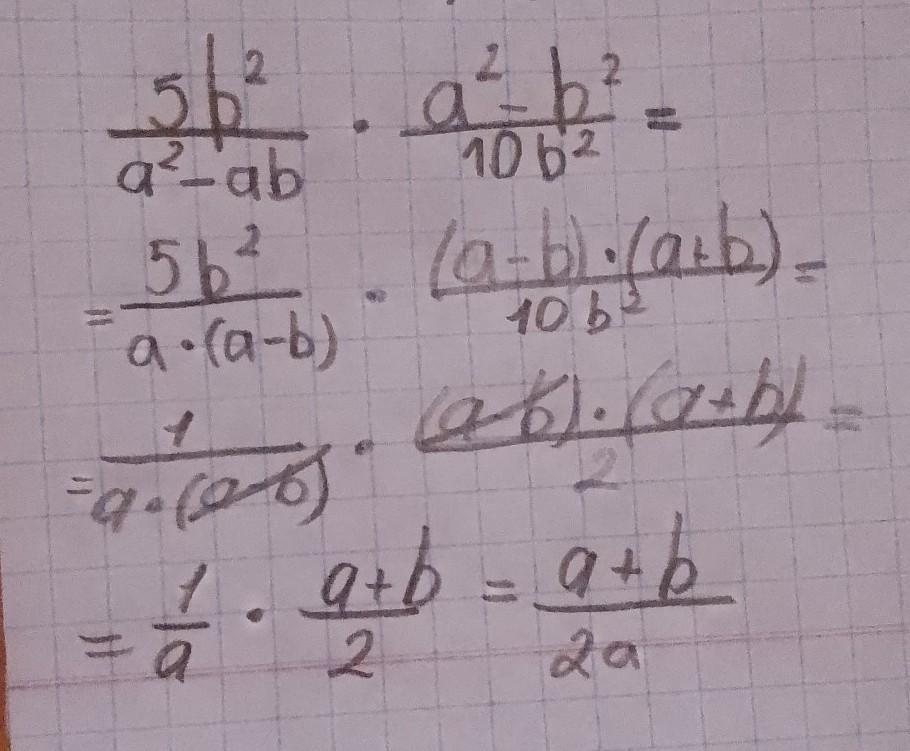 5b²/(a²-ab) · (a²-b²)/(10b²) =
= 5b²/(a·(a-b)) · ((a-b)·(a+b))/(10b²) =
= 1/(a·(a-b)) · ((a-b)·(a+b))/2 =
= 1/a · (a+b)/2 = (a+b)/(2a)